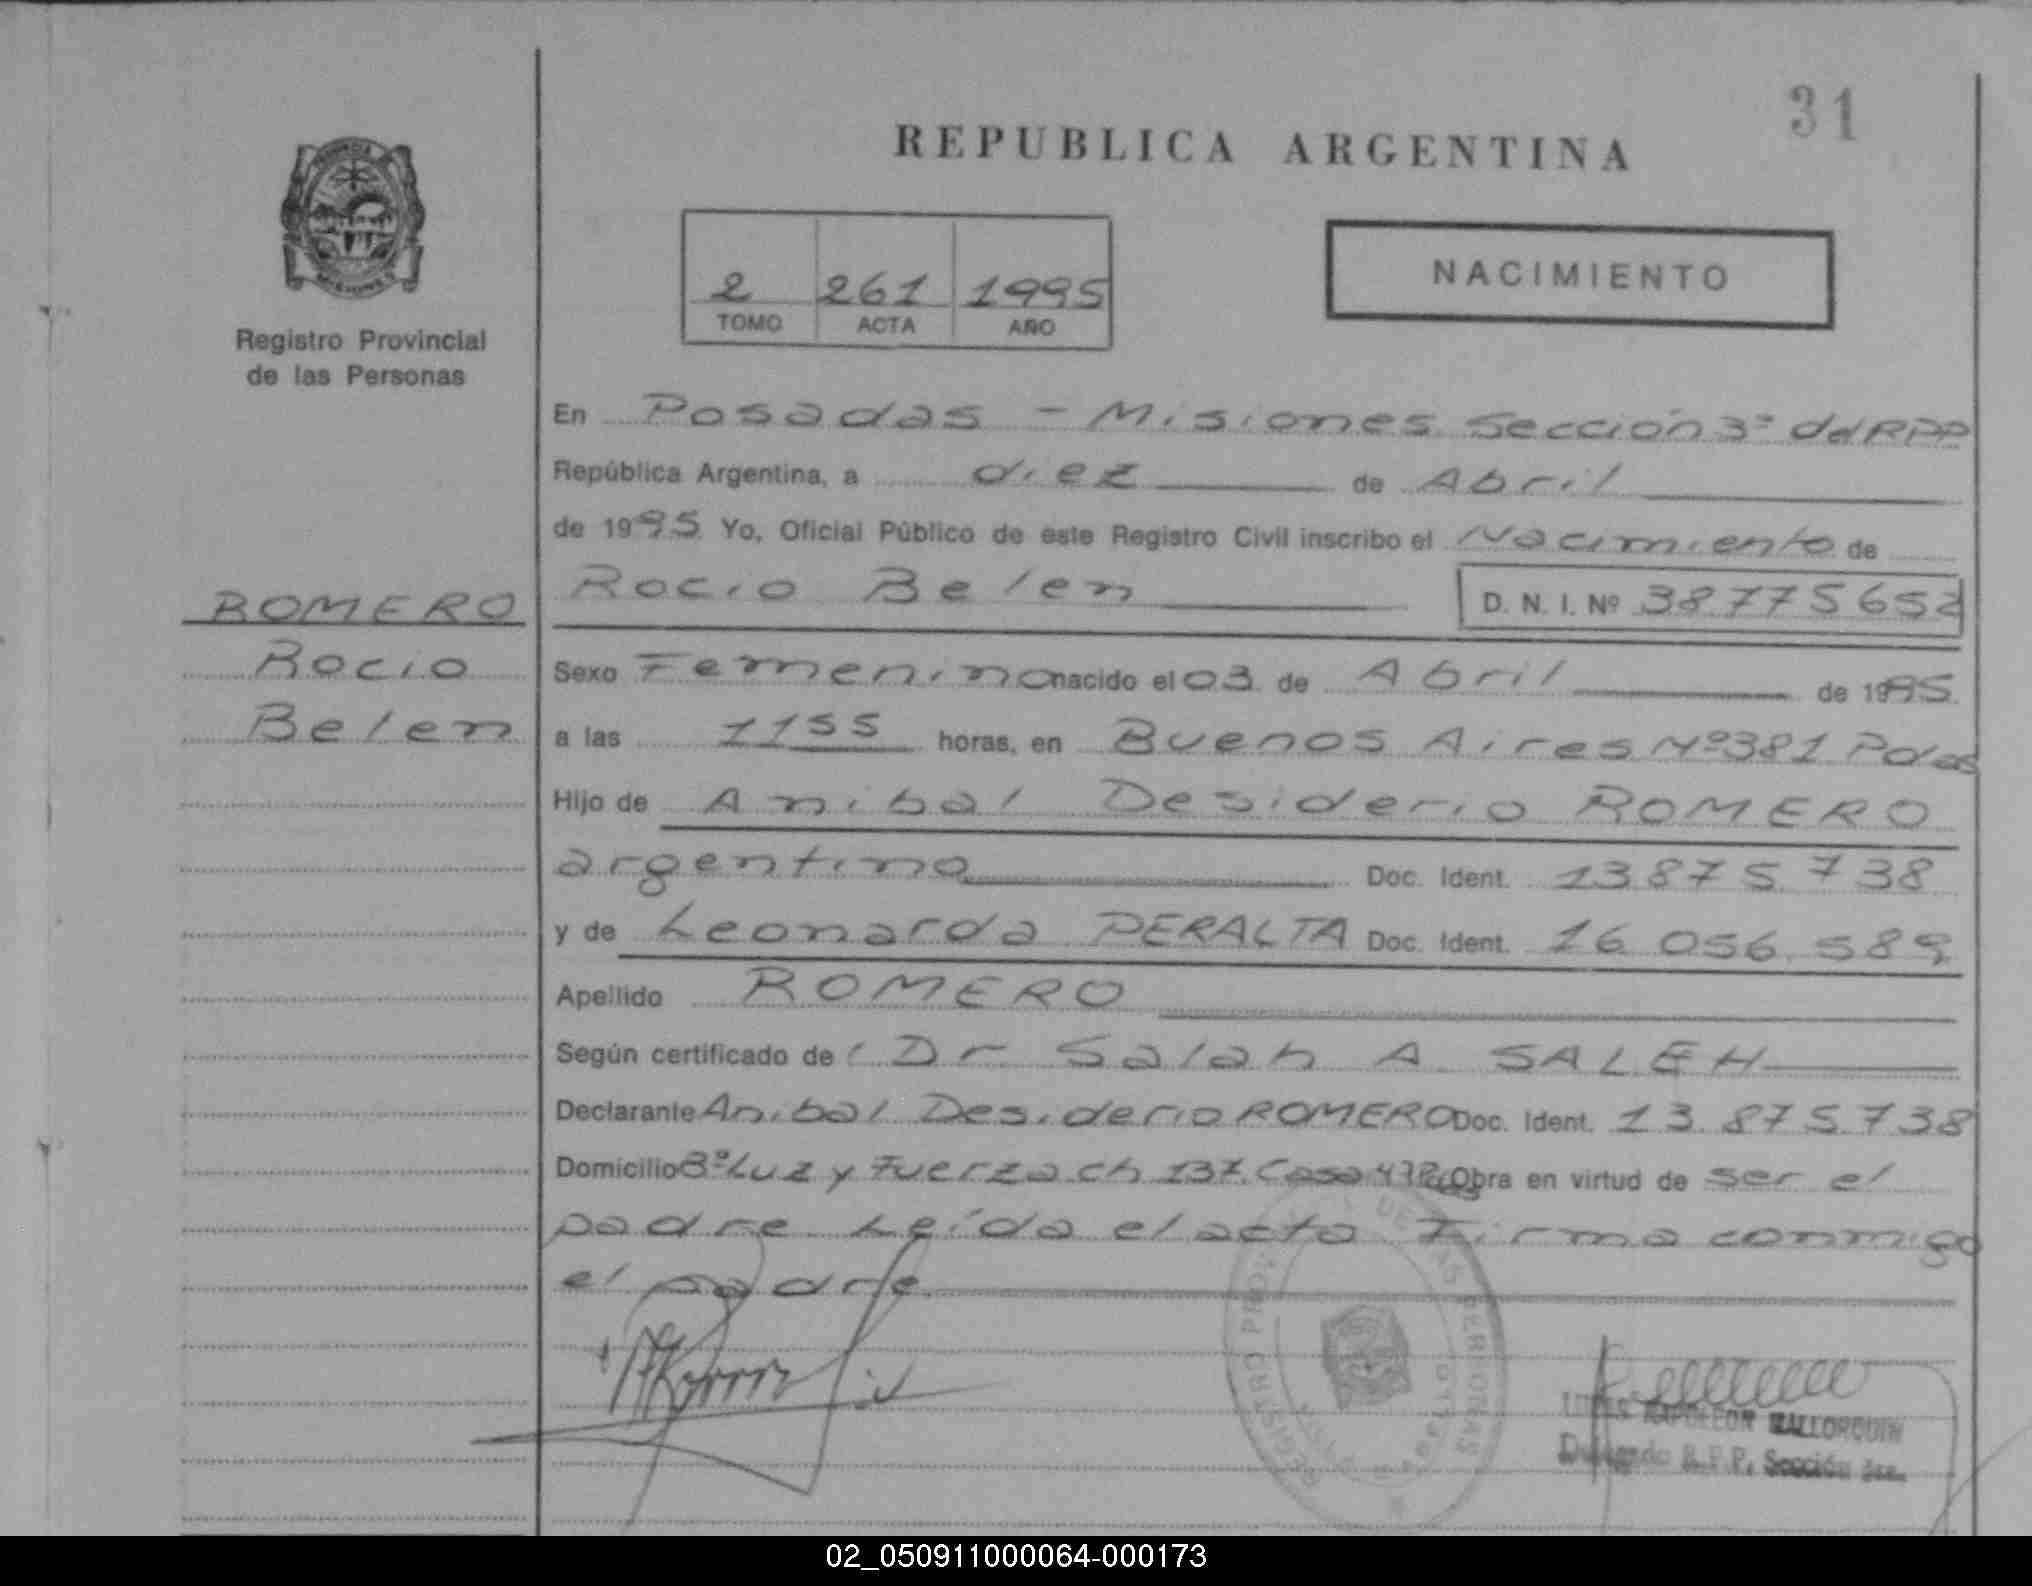 31
REPUBLICA ARGENTINA
2 261 1995
TOMO ACTA AÑO
NACIMIENTO
Registro Provincial
de las Personas
En Posadas - Misiones Sección 3ª del RPP
República Argentina, a diez de Abril
de 1995 Yo, Oficial Público de este Registro Civil inscribo el Nacimiento de
Rocio Belen D. N. I. Nº 38775652
ROMERO
Rocio
Belen
Sexo Femenino nacido el 03 de Abril de 1995
a las 1155 horas, en Buenos Aires Nº 381 Pdas
Hijo de Anibal Desiderio ROMERO
argentino Doc. Ident. 13875738
y de Leonarda PERALTA Doc. Ident. 16.056.589
Apellido ROMERO
Según certificado de Dr Salah A. SALEH
Declarante Anibal Desiderio ROMERO Doc. Ident. 13.875.738
Domicilio Bº Luz y Fuerza ch 137 Casa Obra en virtud de ser el
padre Leída el acta Firma conmigo
el padre
REGISTRO DE LAS PERSONAS
NAPOLEON MALLORQUIN
Delegado R.P.P. Sección 3ra.
02_050911000064-000173